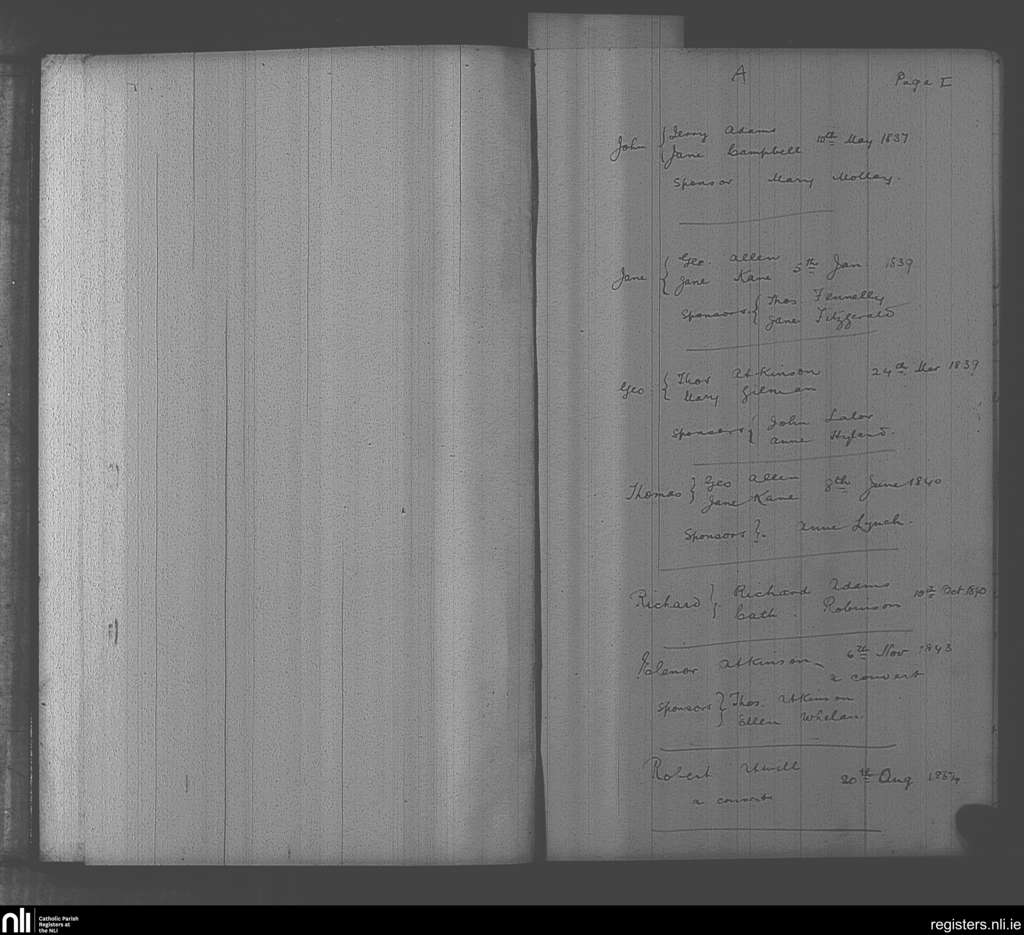 A
Page I
John { Jerry Adams
Jane Campbell 10th May 1837
Sponsor Mary Molloy.
Jane { Geo. Allen
Jane Kane 5th Jan 1839
Sponsors { Thos Fennelly
Jane Fitzgerald
Geo { Thos Atkinson 24th Mar 1839
Mary Gilman
Sponsors { John Lalor
Anne Hyland.
Thomas } Geo Allen 8th June 1840
Jane Kane
Sponsors } Anne Lynch.
Richard } Richard Adams 10th Oct 1840
Cath. Robinson
Elenor Atkinson 6th Nov 1843
a convert
Sponsors } Thos. Atkinson
Ellen Whelan.
Robert 20th Aug
a convert
nli
Catholic Parish
Registers at
the NLI
registers.nli.ie